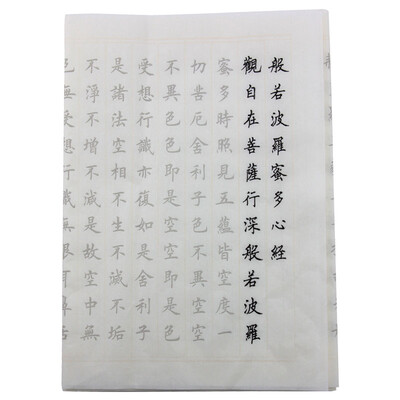 般若波羅蜜多心経
觀自在菩薩行深般若波羅
蜜多時照見五蘊皆空度一
切苦厄舍利子色不異空空
不異色色即是空空即是色
受想行識亦復如是舍利子
是諸法空相不生不滅不垢
不淨不增不減是故空中無